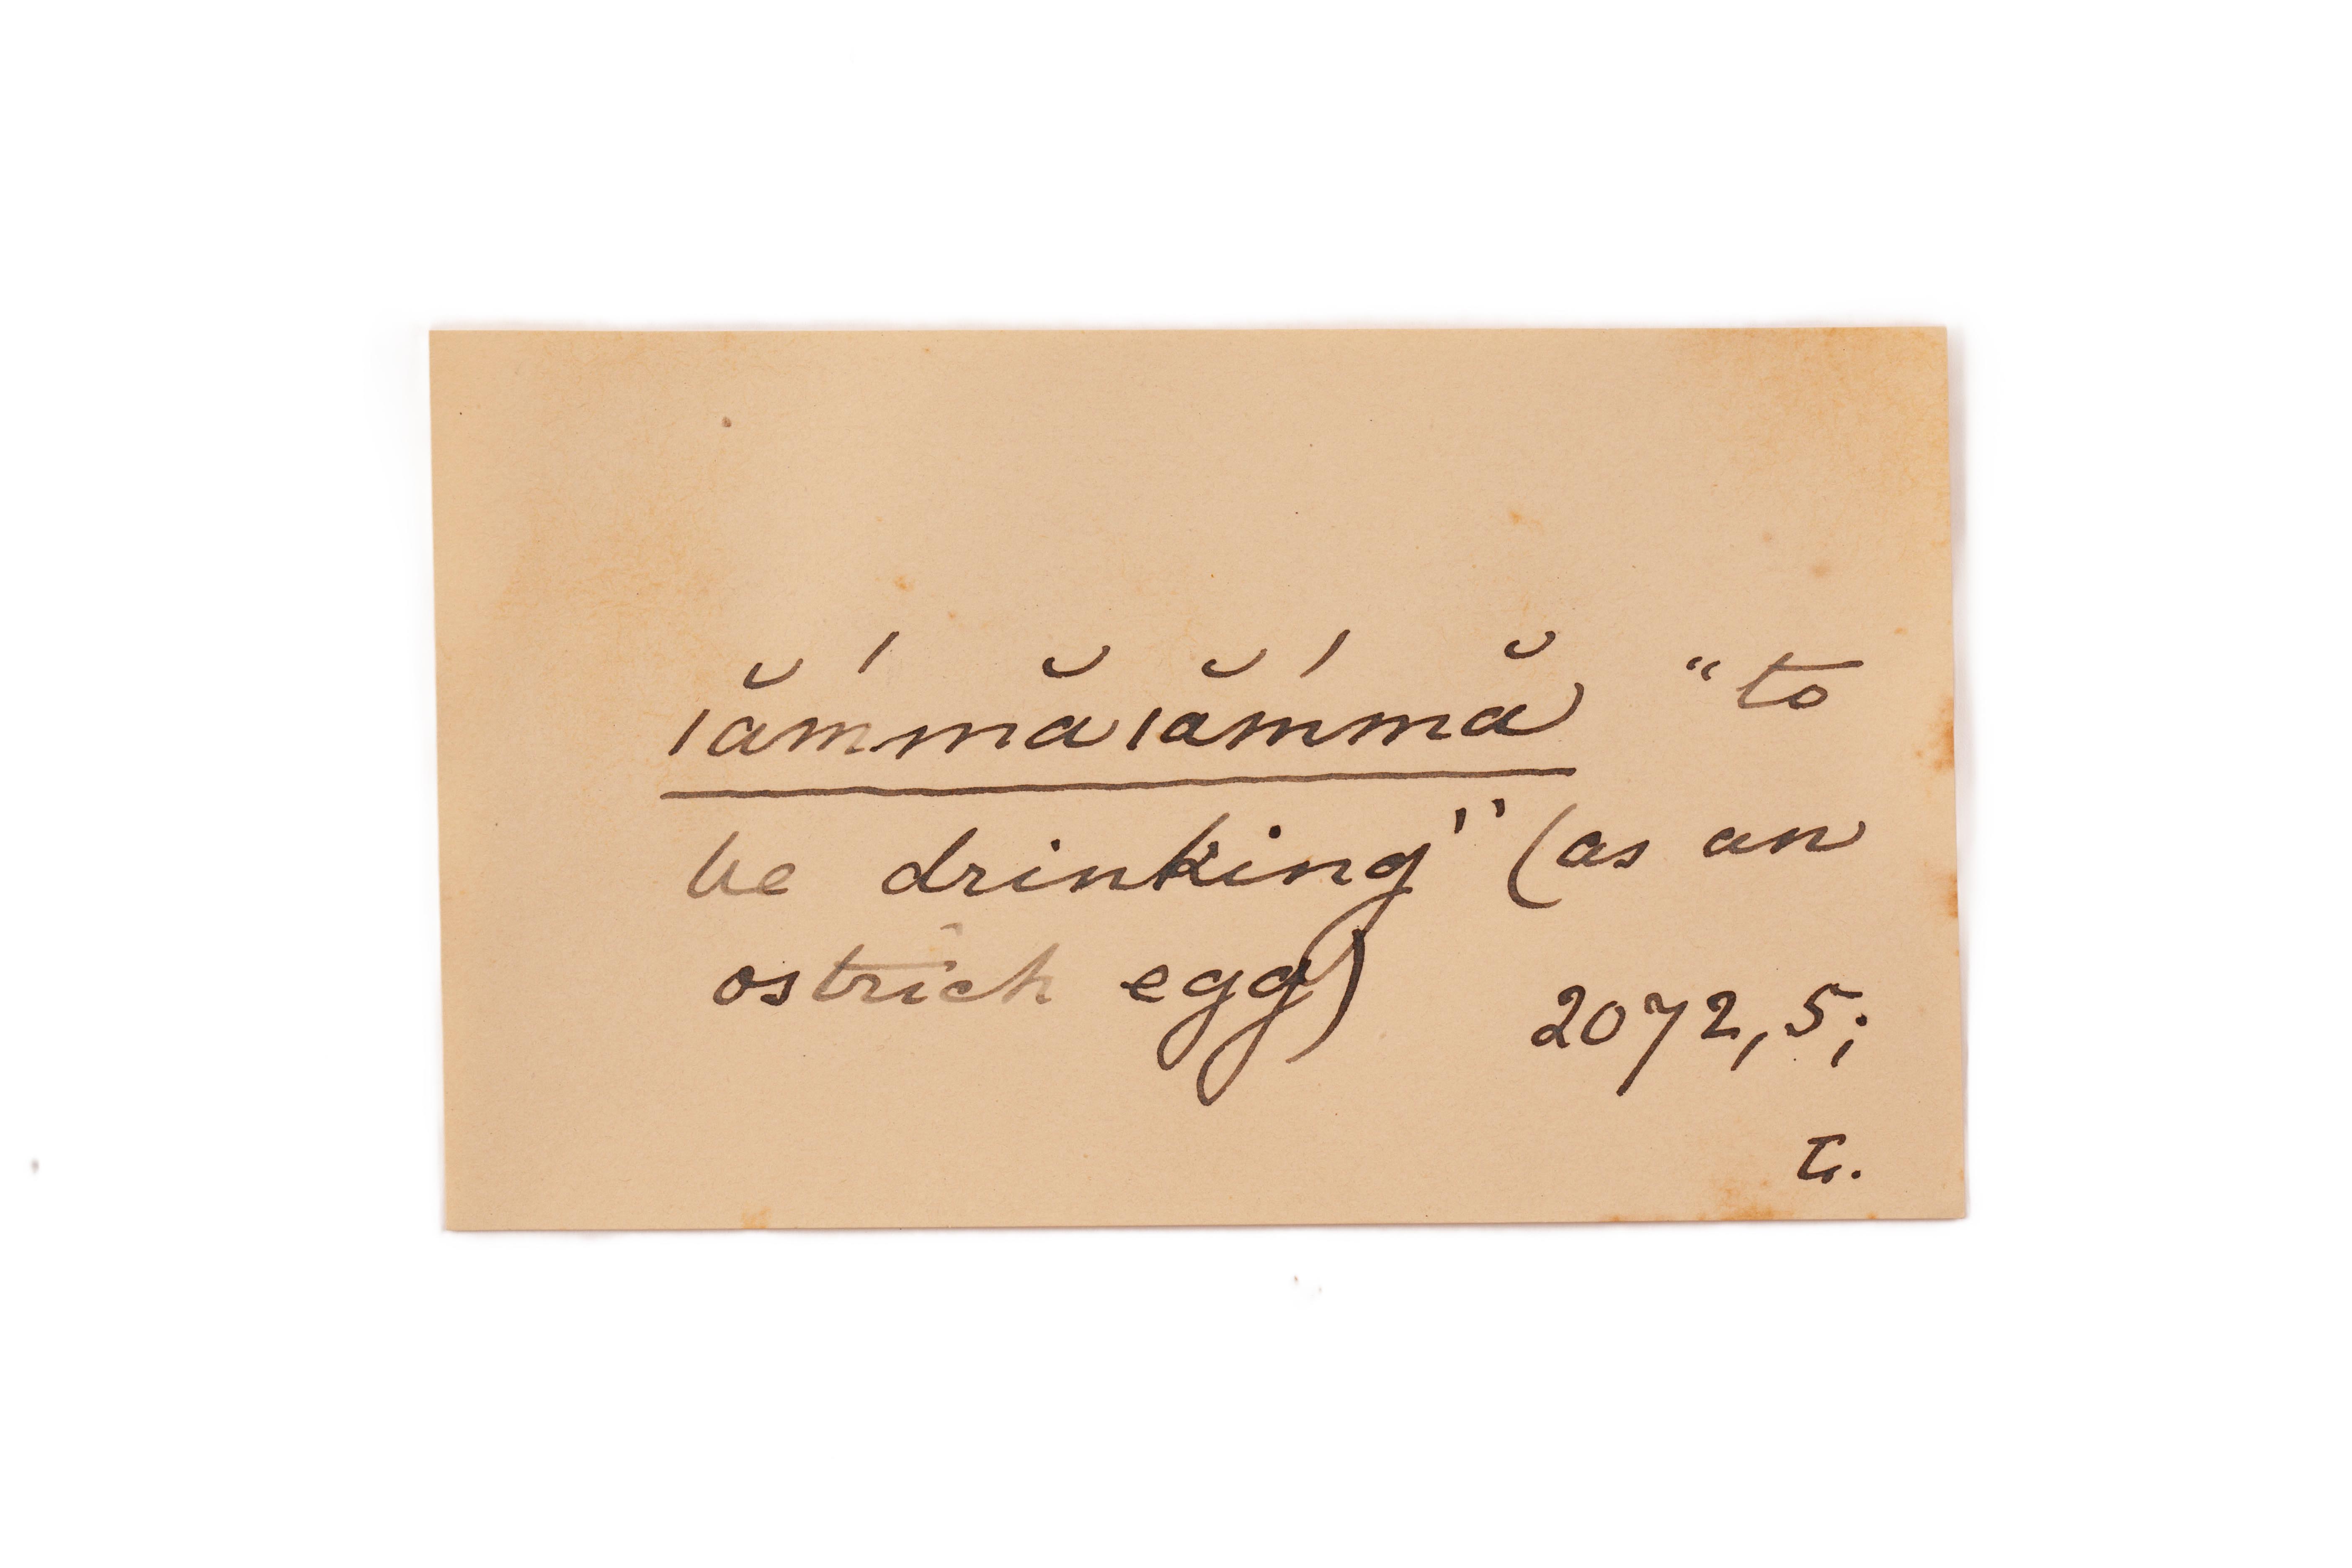 ıắmmăıắmmă “to
be drinking” (as an
ostrich egg)
2072,5;